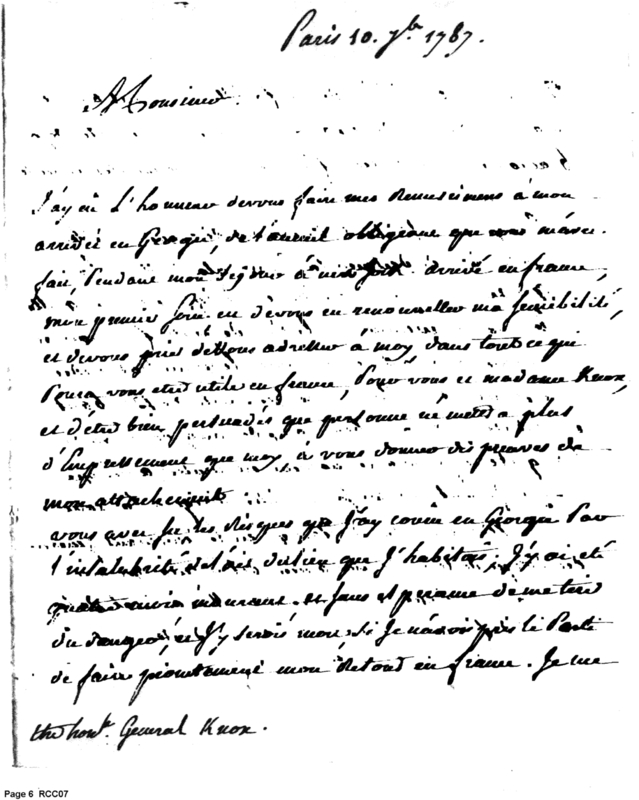 Paris 10. 7bre 1787.
Monsieur
J'ay eu L'honneur devous faire mes Remerciemens à mon
arrivée en Georgie, de l'acceuil obligeant que vous m'avez
fait, Pendant mon sejour à new york. arrivé en france,
mon premier soin est devous en renouveller ma sensibilité,
et devous prier de vous adresser à moy, dans tout ce qui
Poura vous etre utile en france, Pour vous et madame Knox,
et d'être bien persuadés que personne ne mettra plus
d'Empressement que moy à vous donner des preuves de
mon attachement
vous avez sçu les Risques que J'ay couru en Georgie Par
l'insalubrité de l'air du lieu que J'habitois, J'y ai été
mourant. et
du danger, et J'y serois mort si Je n'avois pris le Parti
de faire promtement mon Retour en france. Je me
the honble. General Knox.
Page 6 RCC07